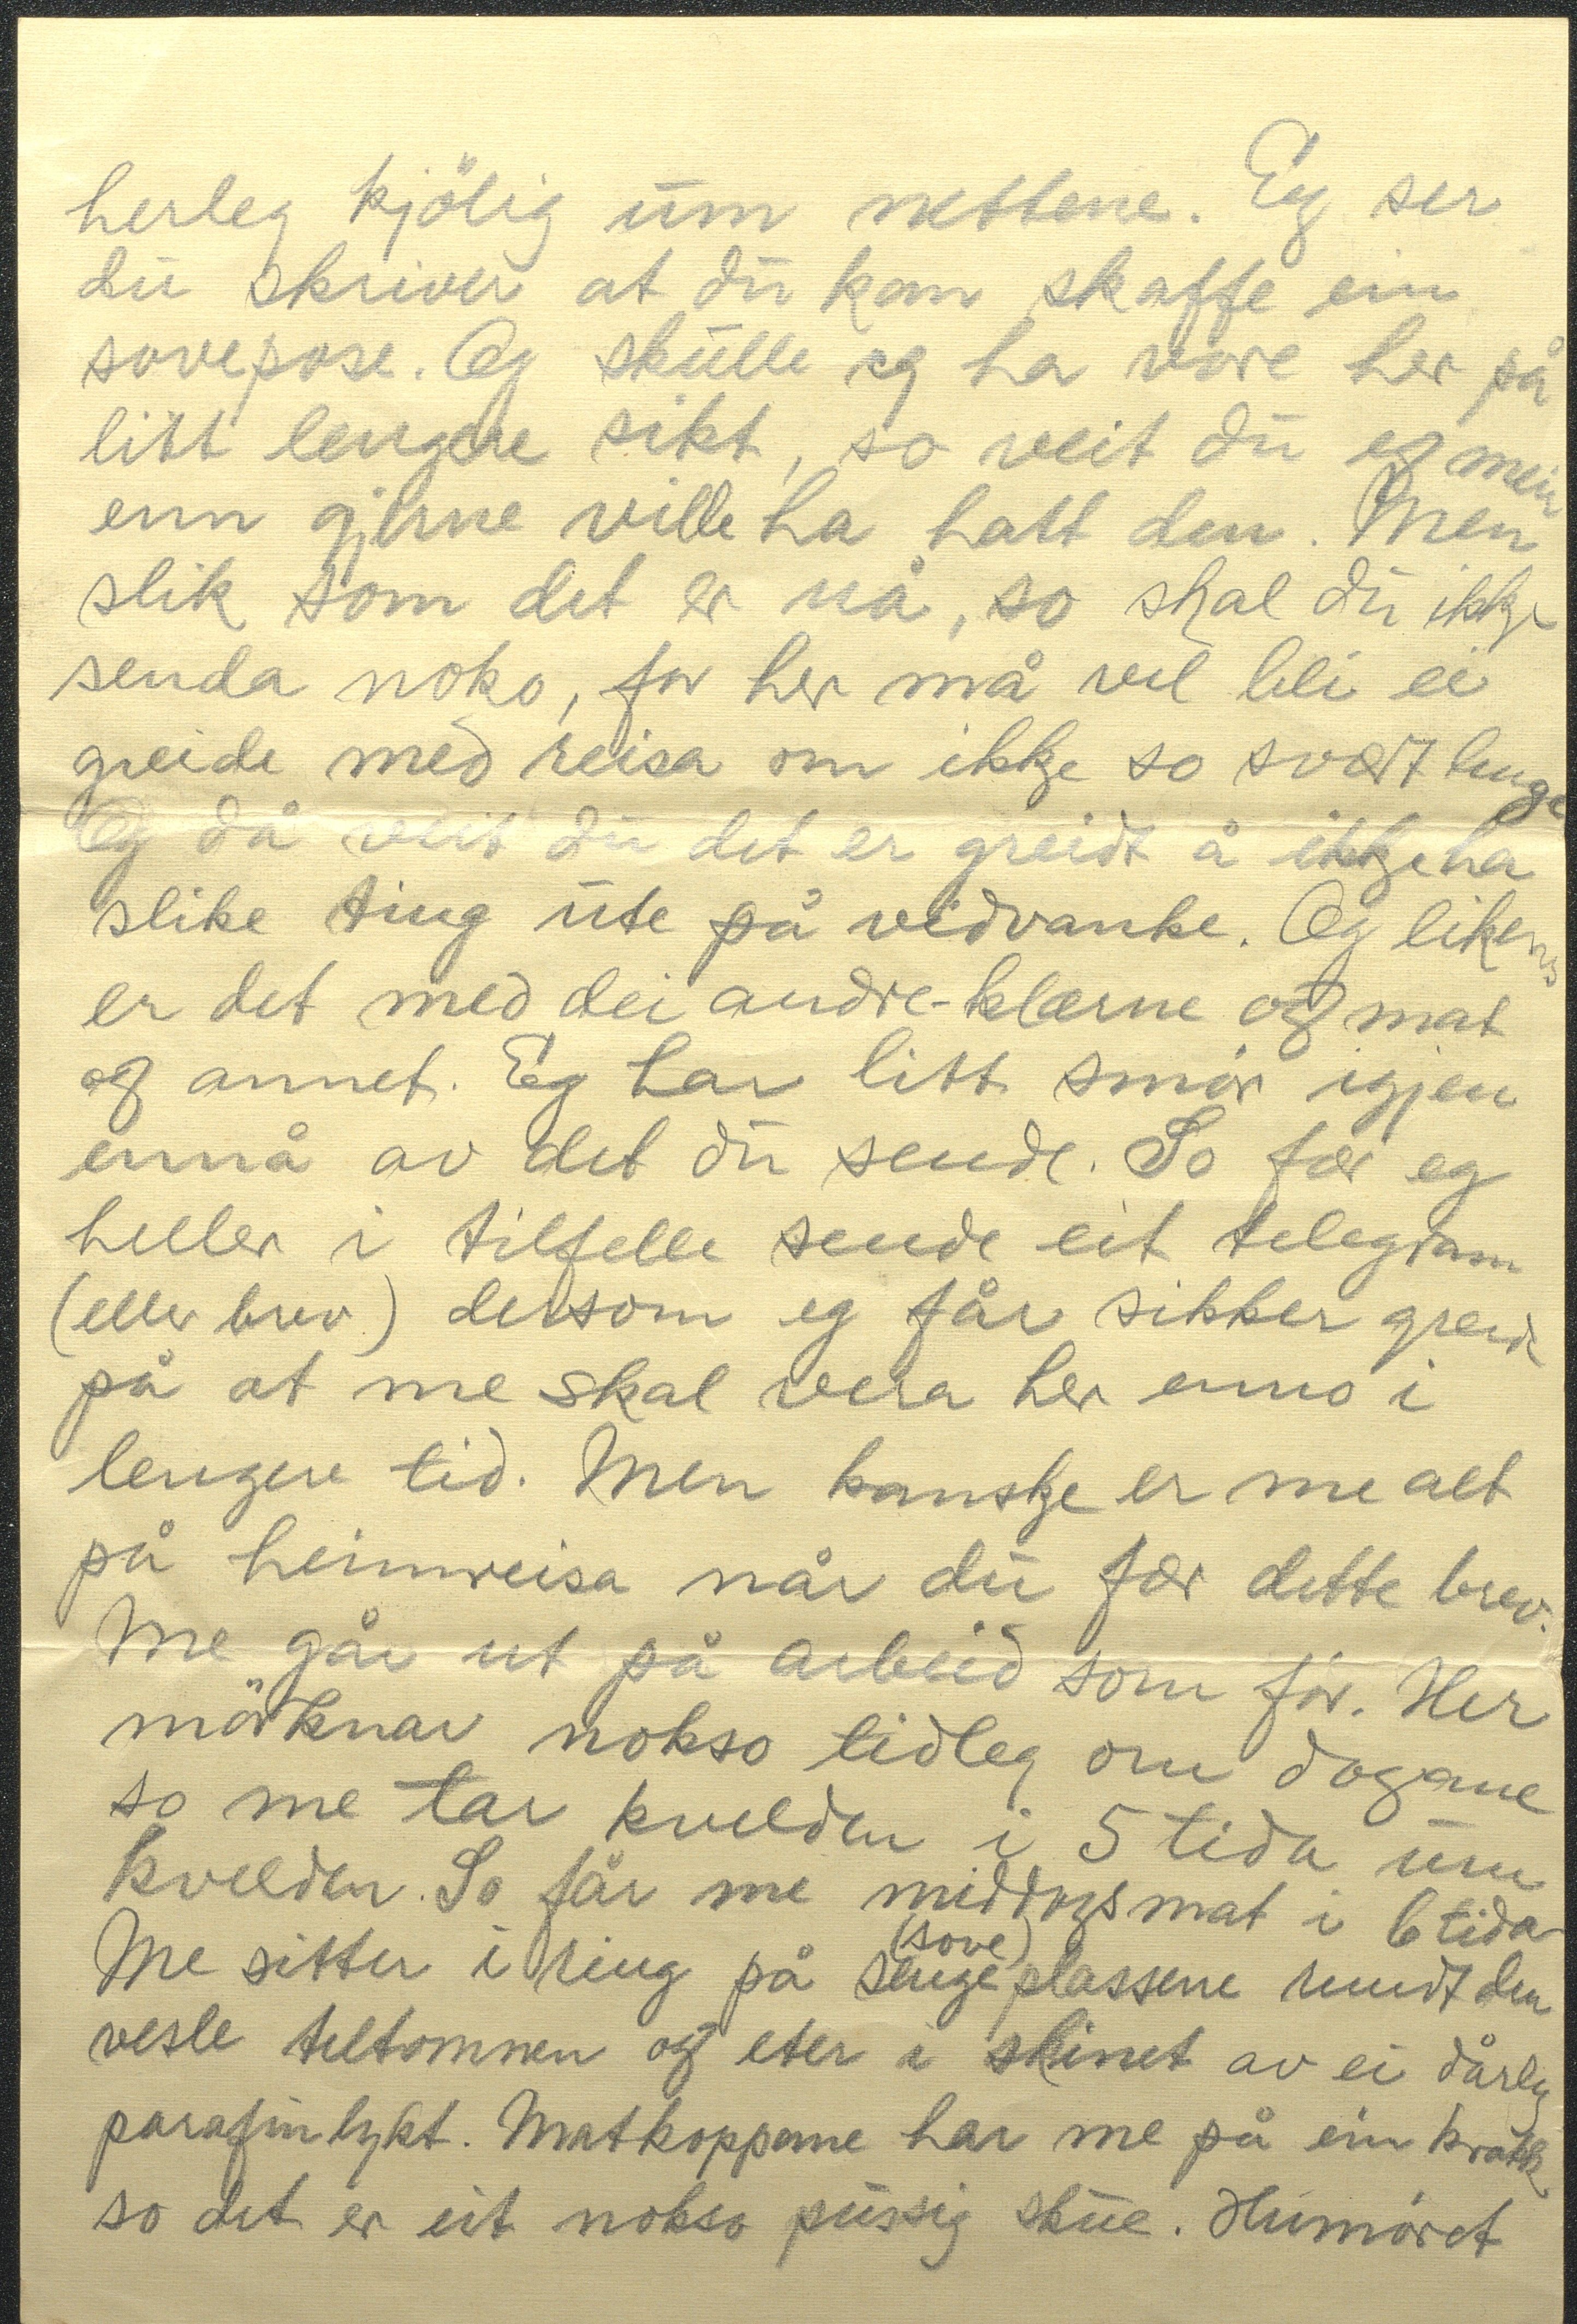 herleg kjölig um nettene. Eg ser
du skriver at du kan skaffe ein
sovepose. Og skulle eg ha vore her på
litt lengere sikt, so veit du eg mein
enn gjerne ville ha hatt den. Men
slik som det er nå, so skal du ikkje
senda noko, for her må vel bli ei
greide med reisa om ikkje so svært lenge
Og då veit du det er greidt å ikkje ha
slike ting ute på vidvanke. Og likens
er det med dei andre-klærne og mat
og annet. Eg har litt smör igjen
ennå av det du sende. So fær eg
heller i tilfelle sende eit telegram
(eller brev) dersom eg får sikker greide
på at me skal vera her enno i
lengere tid. Men kanskje er me alt
på heimreisa når du fær dette brev.
Me går ut på arbeid som för. Her
mörknar nokso tidleg om dagane
so me tar kvelden i 5 tida um
kvelden. So får me middagsmat i 6 tida
Me sitter i ring på senge(sove)plassene rundt den
vesle teltomnen og eter i skinet av ei dårleg
parafinlykt. Matkoppane har me på ein krakk
so det er eit nokso pussig skue. Humöret